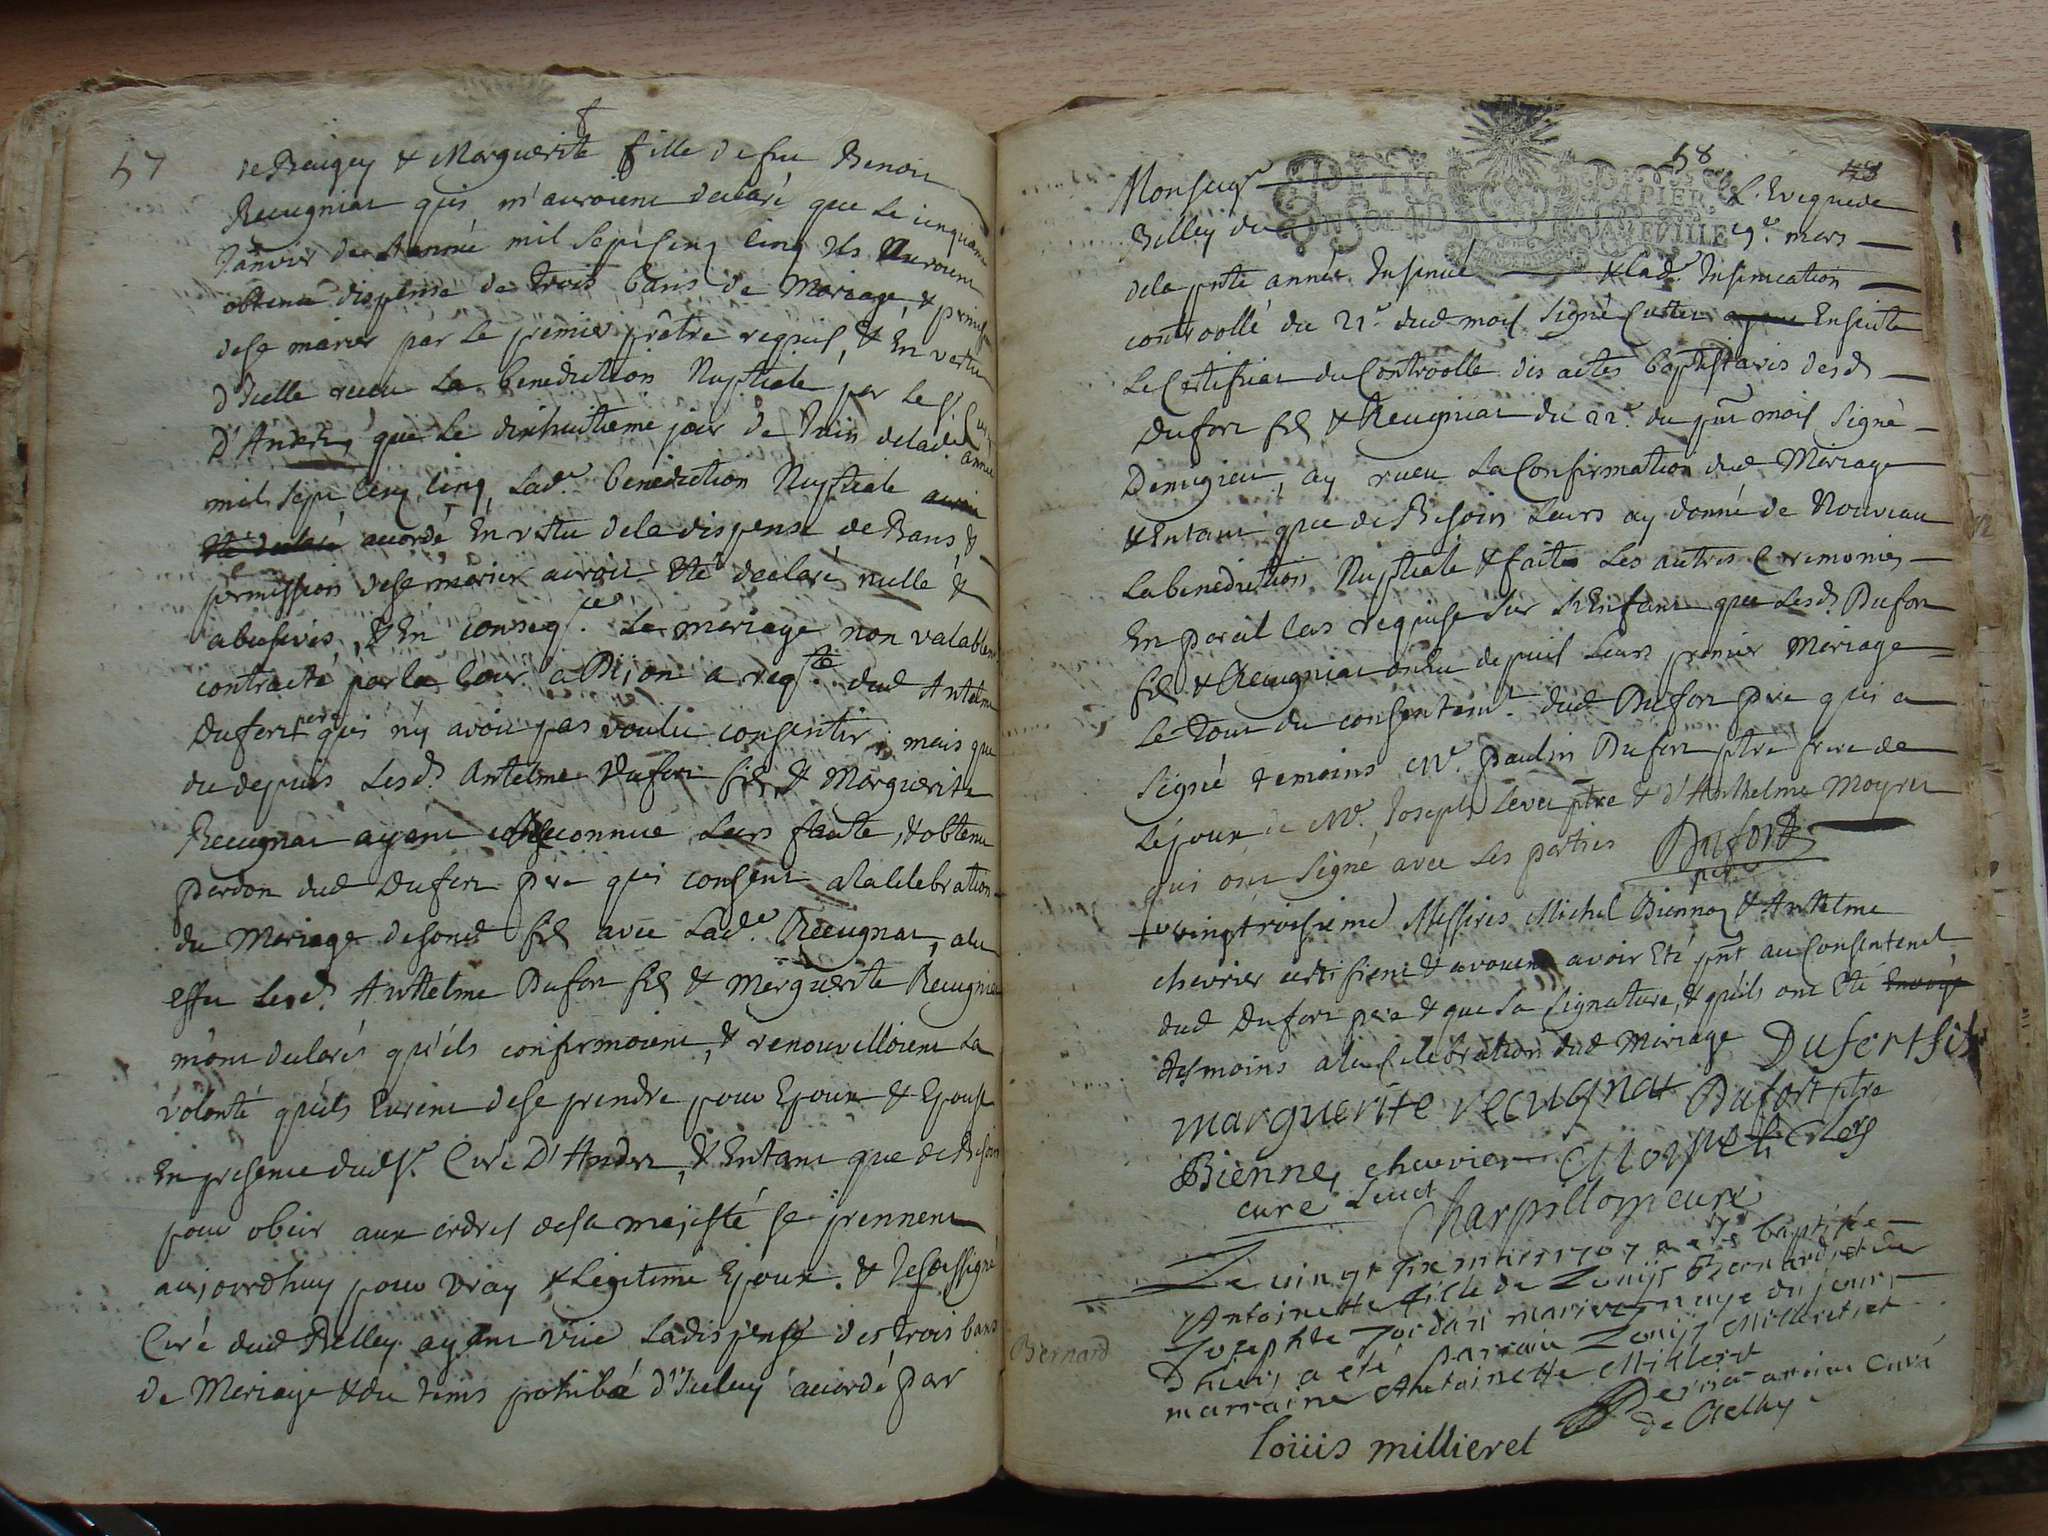 57
de Beugey & Marguerite fille de feu Benoit
Recugniat qui m'auroient declaré que le cinquieme
Janvier de l'année mil sept cinq cinq ils auroient
obtenu dispense de trois bans de Mariage, &
de se marier par le premier prêtre requis, & En vertu
d'Icelle receu La benediction Nuptiale par le Sr. Curé
D'Andert, que Le dixhuitieme jour de Juin de lad. année
mil sept cinq cinq, Lad.e benediction Nuptiale
accordé En vertu de la dispense de Bans, &
permission de se marier auroit Eté declaré nulle &
abusives, & En conseq.ce Le mariage non valablem.t
contracté par la Cour a Dijon a req.te dud Antelme
Dufort pere qui n'y avoit pas voulu consentir, mais que
du depuis Lesd. Antelme Dufort fils & Marguerite
Recugnat ayant reconnue Leurs faute, & obtenu
perdon dud Dufort pere qui consent a la Celebration
du Mariage de son d fils avec Lad.e Recugnat, a cet
effet Lesd. Anthelme Dufort fils & Marguerite Recugniat
m'ont declarés qu'ils confirmoient, & renouvelloient La
volonté qu'ils Eurent de se prendre pour Epoux & Epouse
En presence dud Sr. Curé D'Andert, & Entant que de Besoin
pour obeir aux ordres de sa majesté se prennent
aujourdhuy pour vray & Legitime Epoux. & Je Soussigné
Curé dud Belley ayant vüe La dispense des trois bans
de Mariage & du tems prohibé d'Iceluy accordé par
58
Monseigr L'Eveque de
PETIT PAPIER
Belley du 19e mars
de la pnte année Insinué & Lad.e Insinuation
controollé du 21e dud mois Signé Cullet Ensuite
Le Certificat du Controolle des actes Baptistaires desd
Dufort fils & Recugniat du 22e du pnt mois Signé
Demigieu, ay receu La Confirmation dud Mariage
& Entant que de Besoin Leurs ay donné de Nouveau
La benediction Nuptiale & faite Les autres Ceremonies
En pareil Cas requise Sur L'Enfant que Lesd Dufort
fils & Recugniat ont Eu depuis Leurs premier Mariage
Le Tout du consentemt. dud Dufort pere qui a
Signé temoins Mr. Paulin Dufort ptre frere de
L'époux & Mr. Joseph ptre & d'Anthelme
qui ont Signé avec Les parties Dufort
pere
+ vingt troisieme Messires Michel Bienne & Anthelme
chevrier certifient & avouent avoir Eté pnt au Consentemt
dud Dufort pere & que Sa Signature, & qu'ils ont Eté
tesmoins a la Celebration dud Mariage Dufert fils
marguerite recugnat Dufort ptre
Bienne, chevrier
curé
Charpillon
Le vingt six mars 1707 a été baptisée
Antoinette fille de Louys Bernard et de
Josephte Jordan mariés naye du jour
D'hier, a eté parrain Louys Milliret et
Bernard
marraine Antoinette Millerit
curé
de Belley
loüis millieret